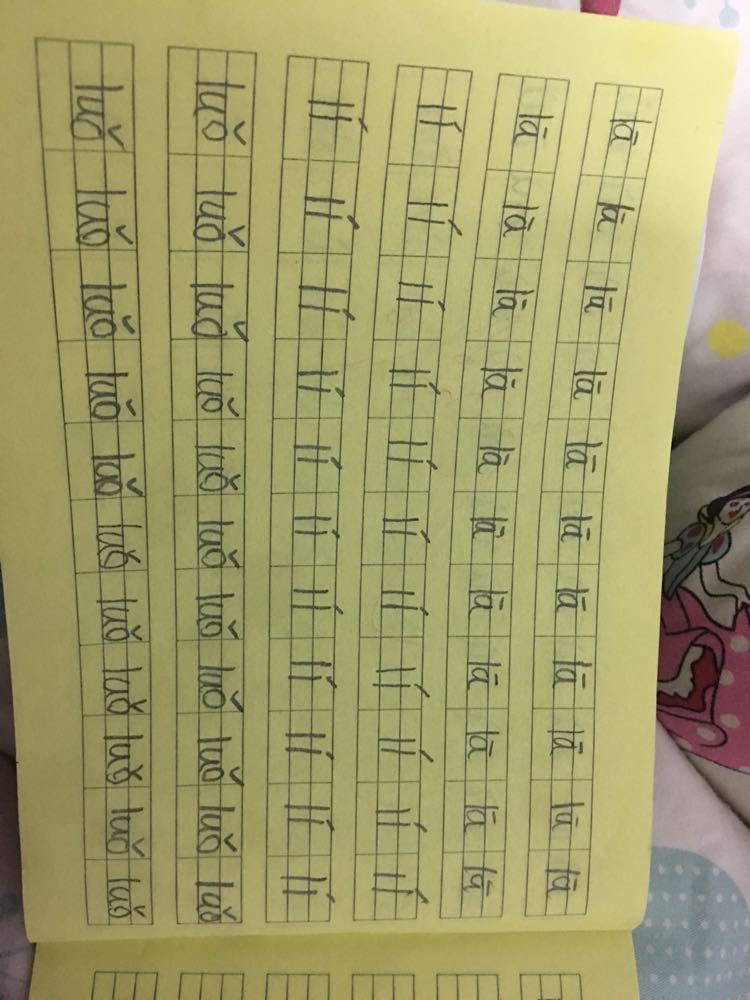 lā lā lā lā lā lā lā lā lā lā lā
lā lā lā lā lā lā lā lā lā lā lā
lí lí lí lí lí lí lí lí lí lí lí
lí lí lí lí lí lí lí lí lí lí lí
luǒ luǒ luǒ luǒ luǒ luǒ luǒ luǒ luǒ luǒ luǒ
luǒ luǒ luǒ luǒ luǒ luǒ luǒ luǒ luǒ luǒ luǒ